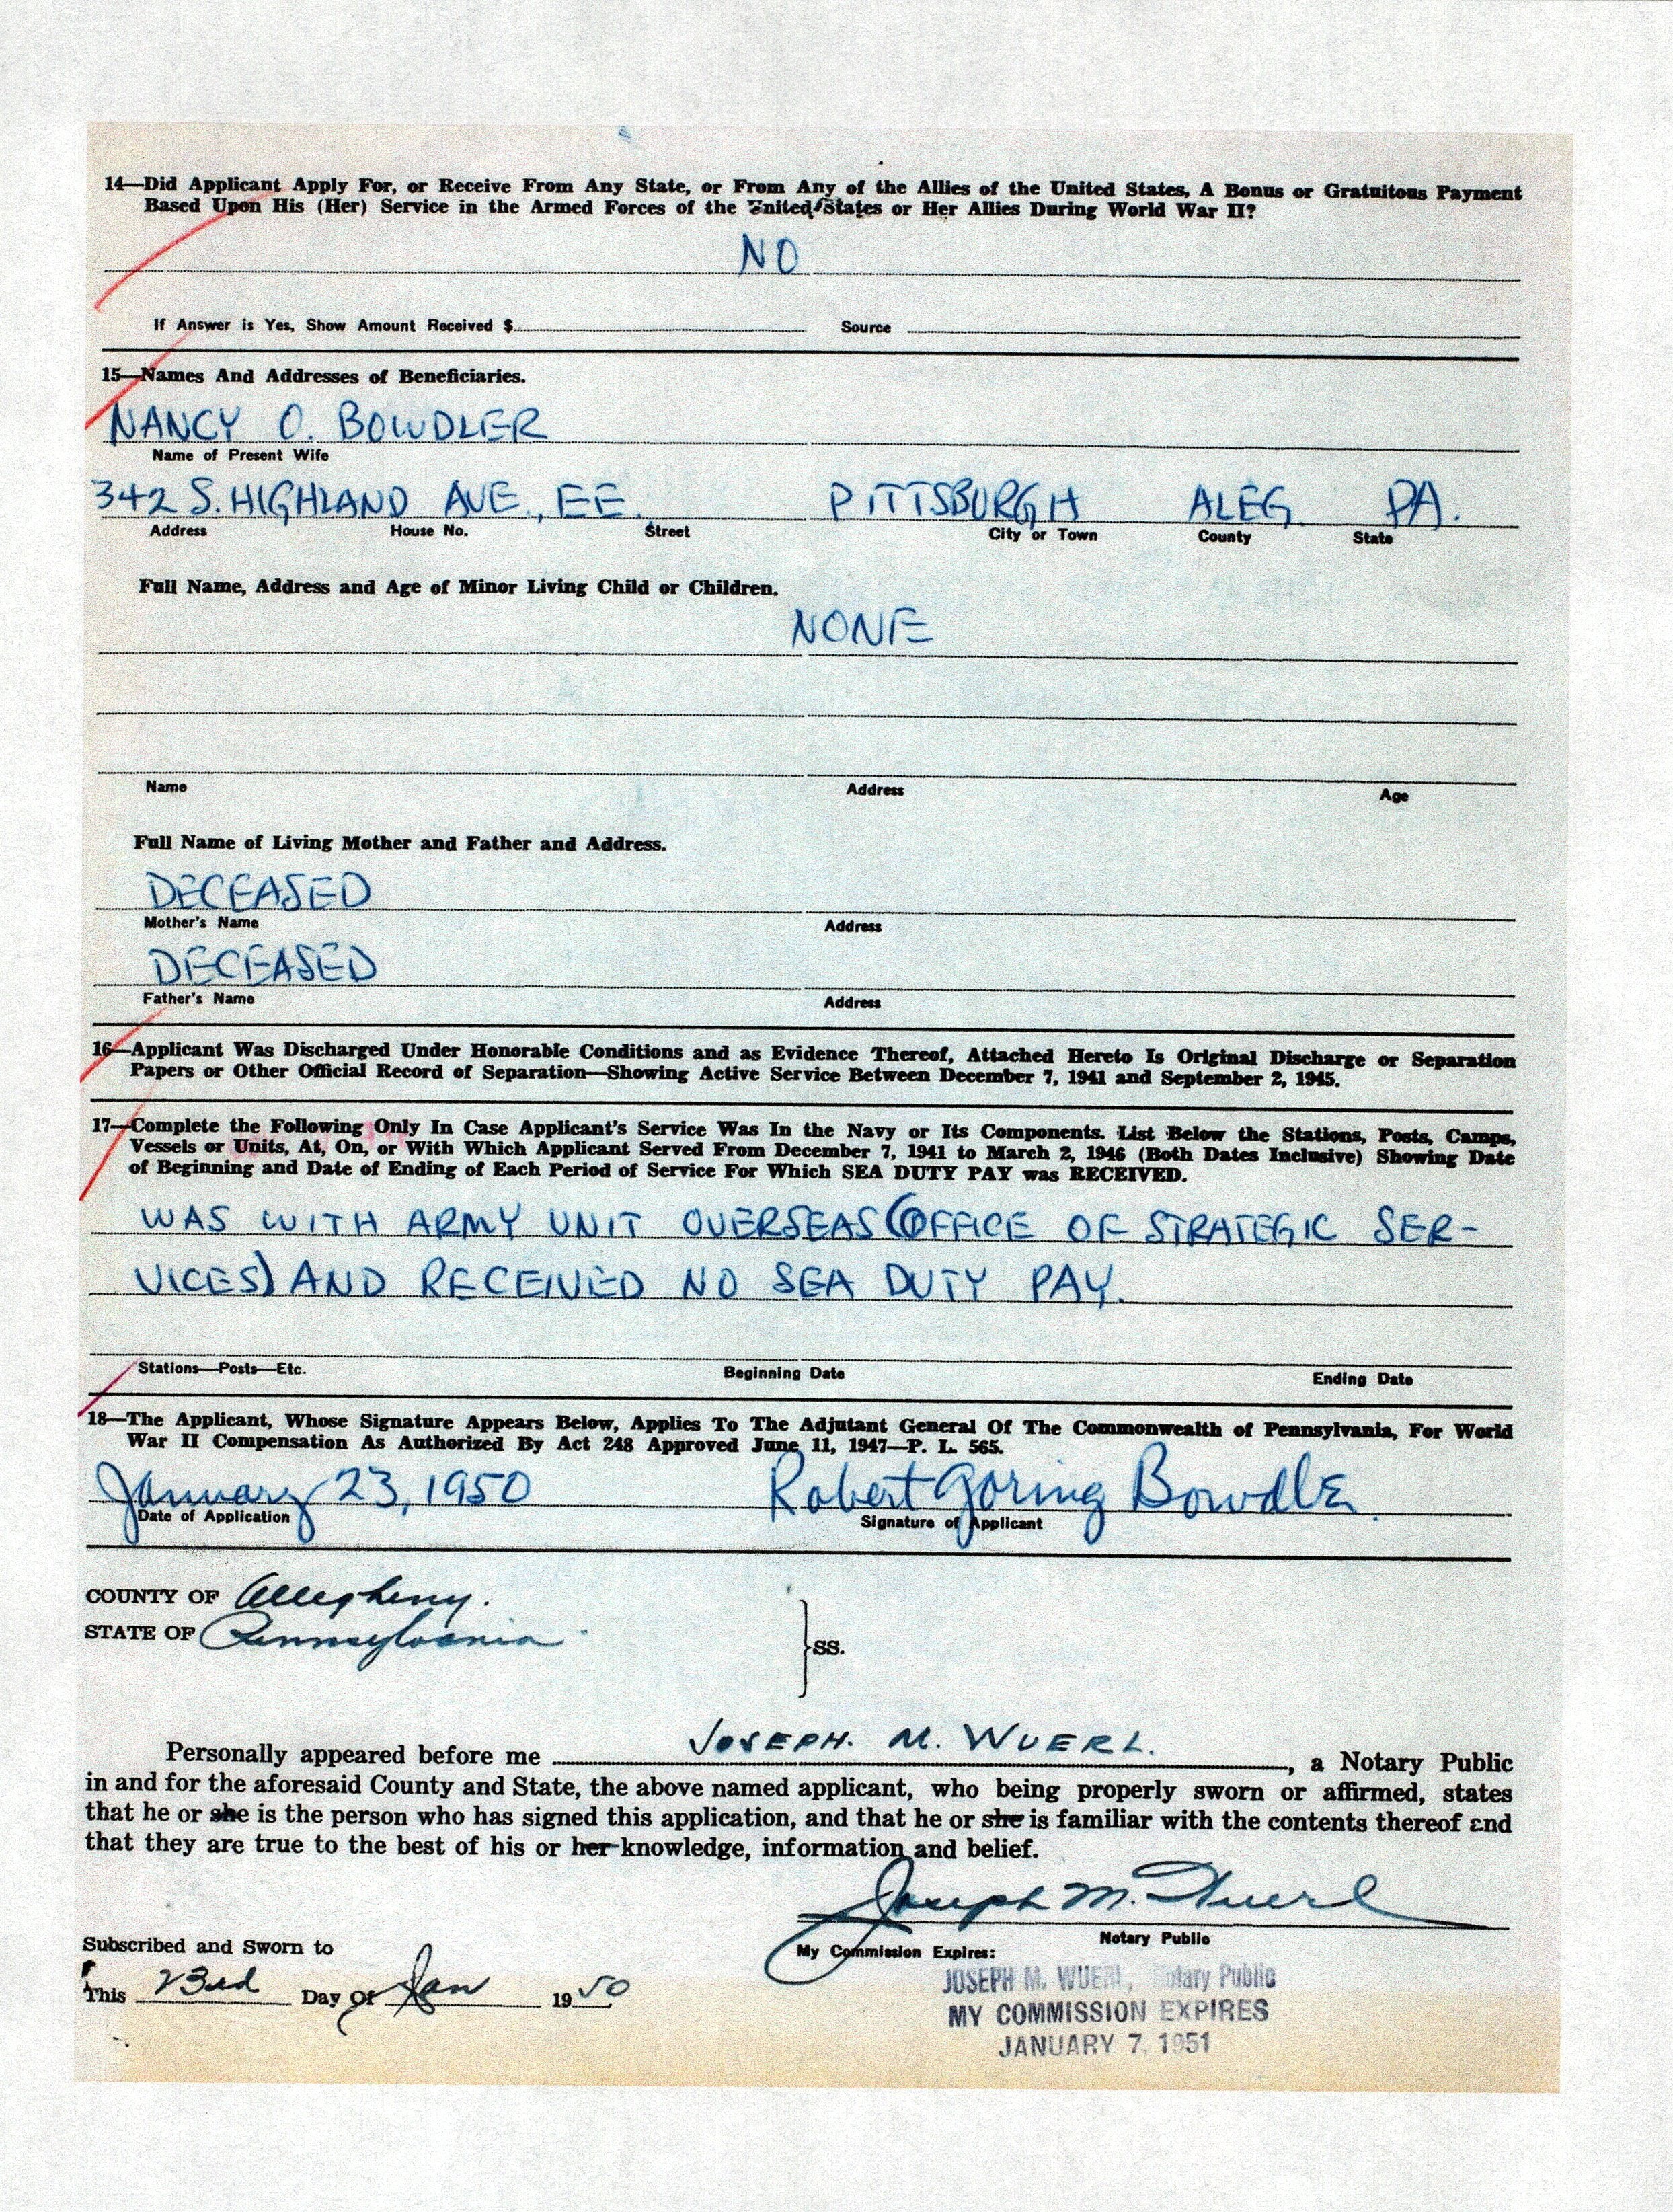 14—Did Applicant Apply For, or Receive From Any State, or From Any of the Allies of the United States, A Bonus or Gratuitous Payment
Based Upon His (Her) Service in the Armed Forces of the United States or Her Allies During World War II?
NO
If Answer is Yes, Show Amount Received $ Source
15—Names And Addresses of Beneficiaries.
NANCY O. BOWDLER
Name of Present Wife
342 S. HIGHLAND AVE., EE. PITTSBURGH ALEG. PA.
Address House No. Street City or Town County State
Full Name, Address and Age of Minor Living Child or Children.
NONE
Name Address Age
Full Name of Living Mother and Father and Address.
DECEASED
Mother's Name Address
DECEASED
Father's Name Address
16—Applicant Was Discharged Under Honorable Conditions and as Evidence Thereof, Attached Hereto Is Original Discharge or Separation
Papers or Other Official Record of Separation—Showing Active Service Between December 7, 1941 and September 2, 1945.
17—Complete the Following Only In Case Applicant's Service Was In the Navy or Its Components. List Below the Stations, Posts, Camps,
Vessels or Units, At, On, or With Which Applicant Served From December 7, 1941 to March 2, 1946 (Both Dates Inclusive) Showing Date
of Beginning and Date of Ending of Each Period of Service For Which SEA DUTY PAY was RECEIVED.
WAS WITH ARMY UNIT OVERSEAS (OFFICE OF STRATEGIC SER-
VICES) AND RECEIVED NO SEA DUTY PAY.
Stations—Posts—Etc. Beginning Date Ending Date
18—The Applicant, Whose Signature Appears Below, Applies To The Adjutant General Of The Commonwealth of Pennsylvania, For World
War II Compensation As Authorized By Act 248 Approved June 11, 1947—P. L. 565.
January 23, 1950 Robert Goring Bowdler
Date of Application Signature of Applicant
COUNTY OF Allegheny.
STATE OF Pennsylvania
SS.
Personally appeared before me JOSEPH. M. WUERL., a Notary Public
in and for the aforesaid County and State, the above named applicant, who being properly sworn or affirmed, states
that he or she is the person who has signed this application, and that he or she is familiar with the contents thereof and
that they are true to the best of his or her knowledge, information and belief.
Joseph M. Wuerl
Notary Public
Subscribed and Sworn to My Commission Expires:
This 23rd Day Of Jan 1950
JOSEPH M. WUERL, Notary Public
MY COMMISSION EXPIRES
JANUARY 7, 1951